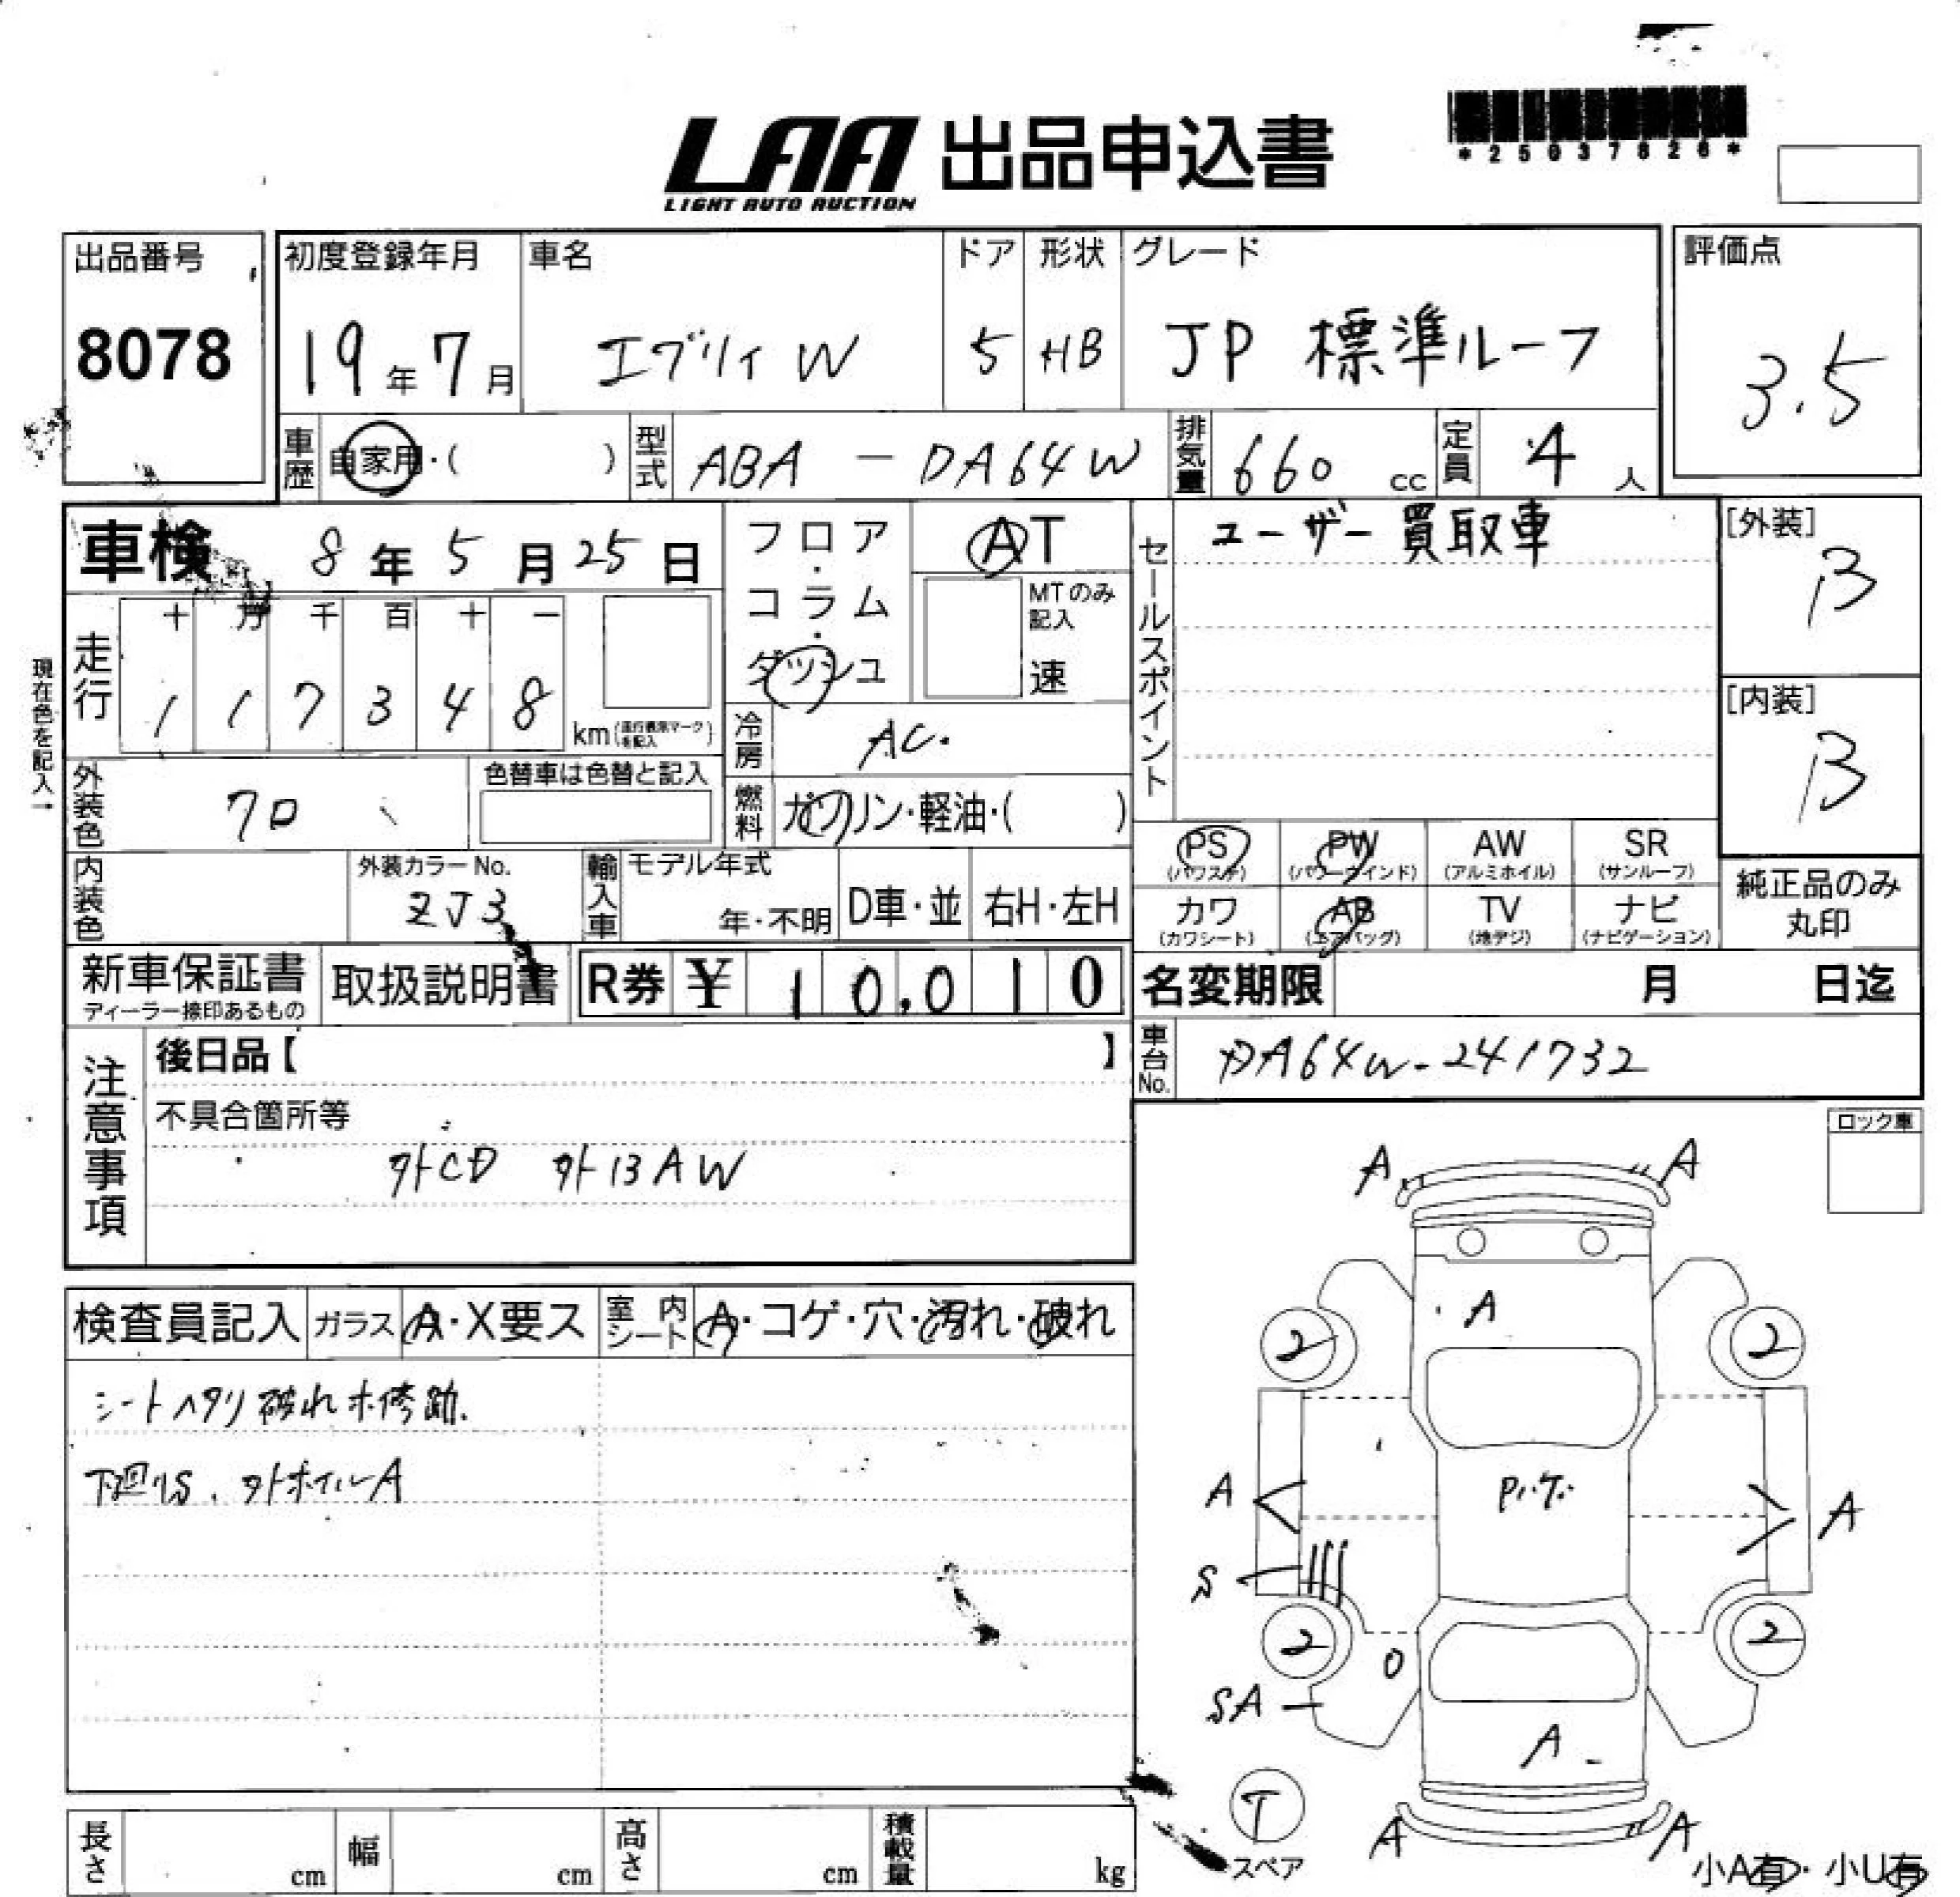 LAA 出品申込書
LIGHT AUTO AUCTION
*25037828*
出品番号
8078
初度登録年月
19年7月
車名
エブリィ W
ドア
5
形状
HB
グレード
JP 標準ルーフ
評価点
3.5
車歴 自家用・( )
型式 ABA - DA64W
排気量 660 cc
定員 4 人
車検 8年5月25日
フロア・コラム・ダッシュ
AT
MTのみ記入
速
セールスポイント
ユーザー買取車
[外装]
B
[内装]
B
現在色を記入→
走行
十 万 千 百 十 一
1 1 7 3 4 8
km(走行表示マークを記入)
冷房 AC.
外装色 クロ
色替車は色替と記入
燃料 ガソリン・軽油・( )
PS (パワステ)
PW (パワーウインド)
AW (アルミホイル)
SR (サンルーフ)
カワ (カワシート)
AB (エアバッグ)
TV (地デジ)
ナビ (ナビゲーション)
純正品のみ丸印
内装色
外装カラーNo.
ZJ3
輸入車
モデル年式
年・不明
D車・並
右H・左H
新車保証書
ディーラー捺印あるもの
取扱説明書
R券 ¥ 10,010
名変期限 月 日迄
車台No. DA64W-241732
注意事項
後日品【 】
不具合箇所等
外CD 外13AW
ロック車
検査員記入
ガラス A・X要ス
室内シート A・コゲ・穴・汚れ・破れ
シートヘタリ破れ補修跡.
下廻りS. 外ホイルA
A A
A
2 2
A A
S
2 2
O
SA
A
T
スペア
A A
小A有・小U有
長さ cm
幅 cm
高さ cm
積載量 kg